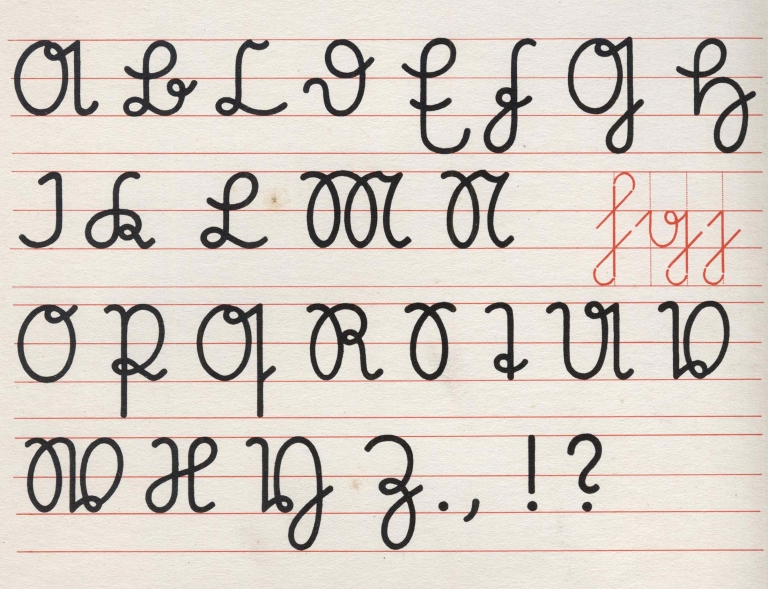 A B C D E F G H
I K L M N
O P Q R S T U V
W X Y Z . , ! ?